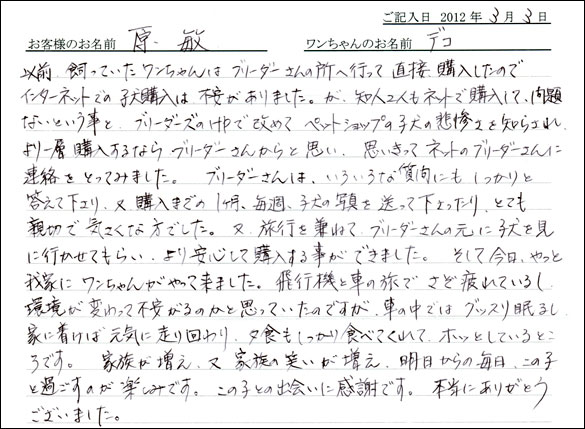 ご記入日 2012年 3月 3日
お客様のお名前 原 敏 ワンちゃんのお名前 デコ
以前、飼っていたワンちゃんはブリーダーさんの所へ行って直接購入したので
インターネットでの子犬購入は不安がありました。が、知人2人もネットで購入して、問題
ないという事と、ブリーダーズのHPで改めてペットショップの子犬の悲惨さを知らされ
より一層購入するならブリーダーさんからと思い、思いきってネットのブリーダーさんに
連絡をとってみました。 ブリーダーさんは、いろいろな質問にもしっかりと
答えて下さり、又購入までの1ヶ月、毎週、子犬の写真を送って下さったり、とても
親切で気さくな方でした。又、旅行を兼ねてブリーダーさんの元に子犬を見
に行かせてもらい、より安心して購入する事ができました。そして今日、やっと
我家にワンちゃんがやって来ました。飛行機と車の旅でさぞ疲れているし
環境が変わって不安がるのかと思っていたのですが、車の中ではグッスリ眠るし
家に着けば元気に走り回わり、夕食もしっかり食べてくれて、ホッとしているとこ
ろです。 家族が増え、又家族の笑いが増え、明日からの毎日、この子
と過ごすのが楽しみです。この子との出会いに感謝です。本当にありがとう
ございました。